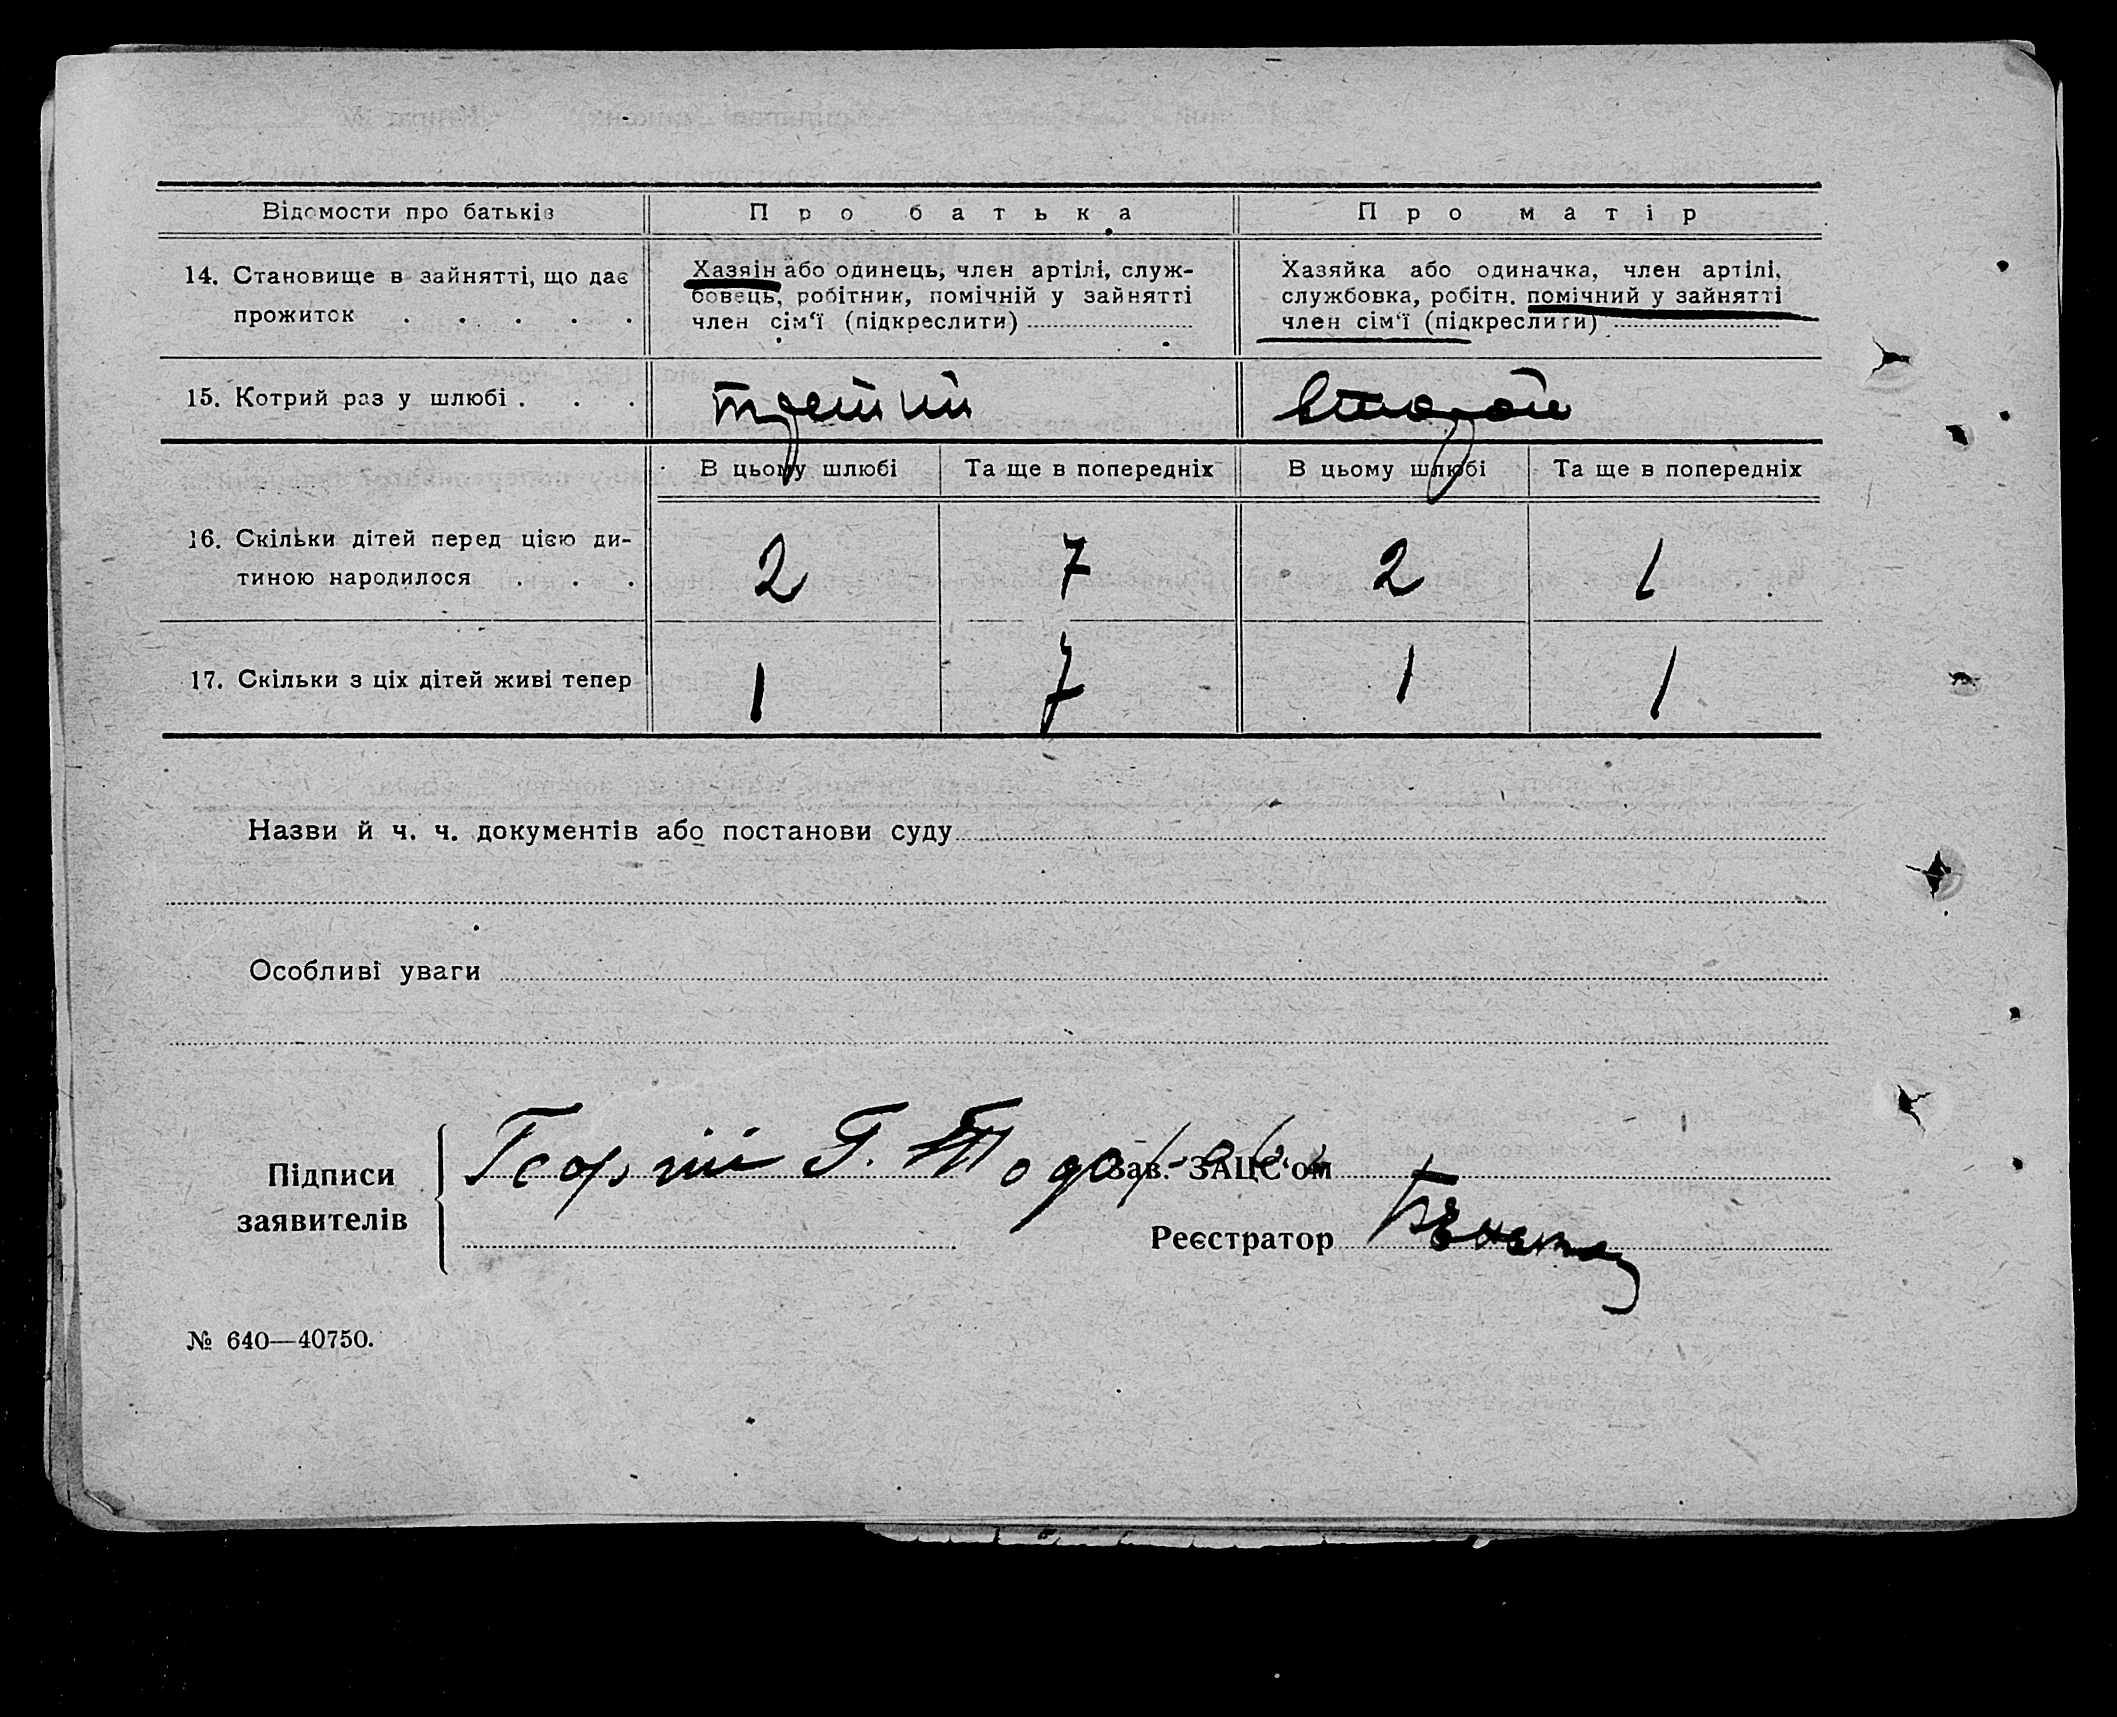 Відомости про батьків Про батька Про матір
14. Становище в зайнятті, що дає прожиток . . . . .
Хазяїн або одинець, член артілі, служ-
бовець, робітник, помічній у зайнятті
член сім‘ї (підкреслити)
Хазяйка або одиначка, член артілі,
службовка, робітн. помічний у зайнятті
член сім‘ї (підкреслити)
15. Котрий раз у шлюбі . . . третий второй
В цьому шлюбі Та ще в попередніх В цьому шлюбі Та ще в попередніх
16. Скільки дітей перед цією ди-
тиною народилося . . . 2 7 2 1
17. Скільки з ціх дітей живі тепер 1 7 1 1
Назви й ч. ч. документів або постанови суду
Особливі уваги
Підписи
заявителів
Георгий Г. Тодоров
Зав. ЗАЦС‘ом
Реєстратор
№ 640—40750.